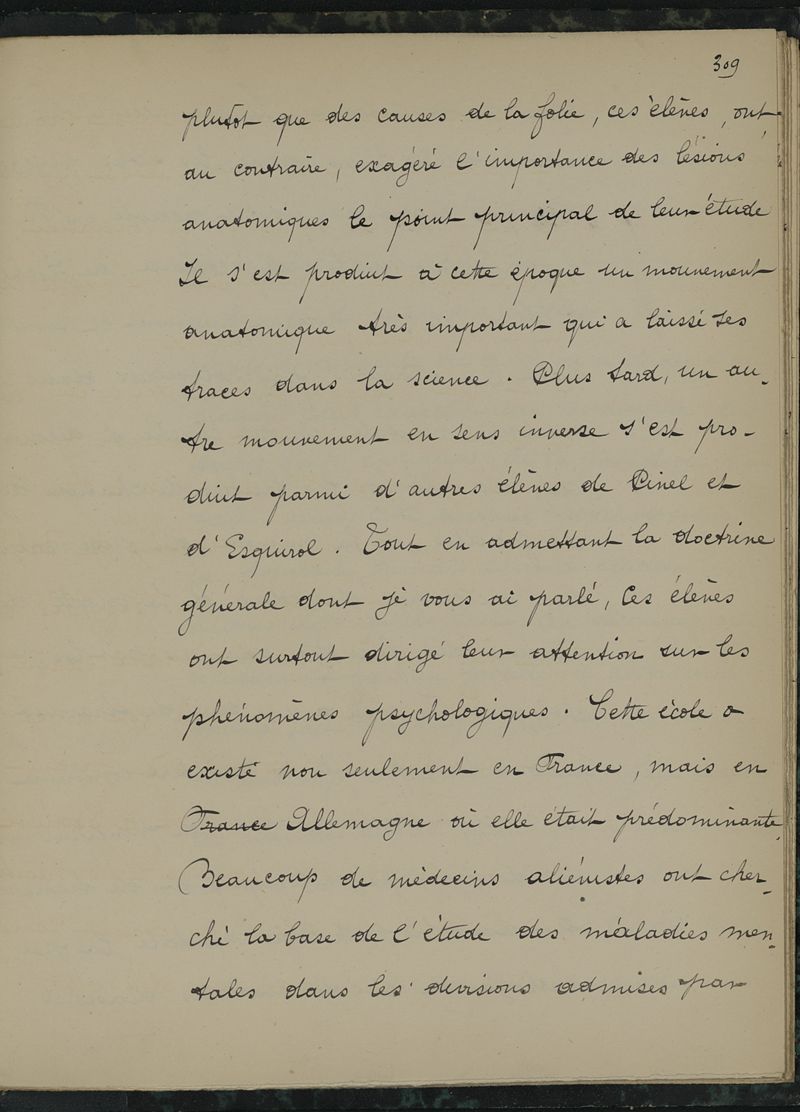 309
plutôt que des causes de la folie, ces élèves, ont
au contraire, exagéré l'importance des lésions
anatomiques le point principal de leur étude
Il s'est produit à cette époque un mouvement
anatomique très important qui a laissé ses
traces dans la science. Plus tard, un au-
tre mouvement en sens inverse s'est pro-
duit parmi d'autres élèves de Pinel et
d'Esquirol. Tout en admettant la doctrine
générale dont je vous ai parlé, ces élèves
ont surtout dirigé leur attention sur les
phénomènes psychologiques. Cette école a
existé non seulement en France, mais en
France Allemagne où elle était prédominante.
Beaucoup de médecins aliénistes ont cher-
ché la base de l'étude des maladies men-
tales dans les divisions admises par